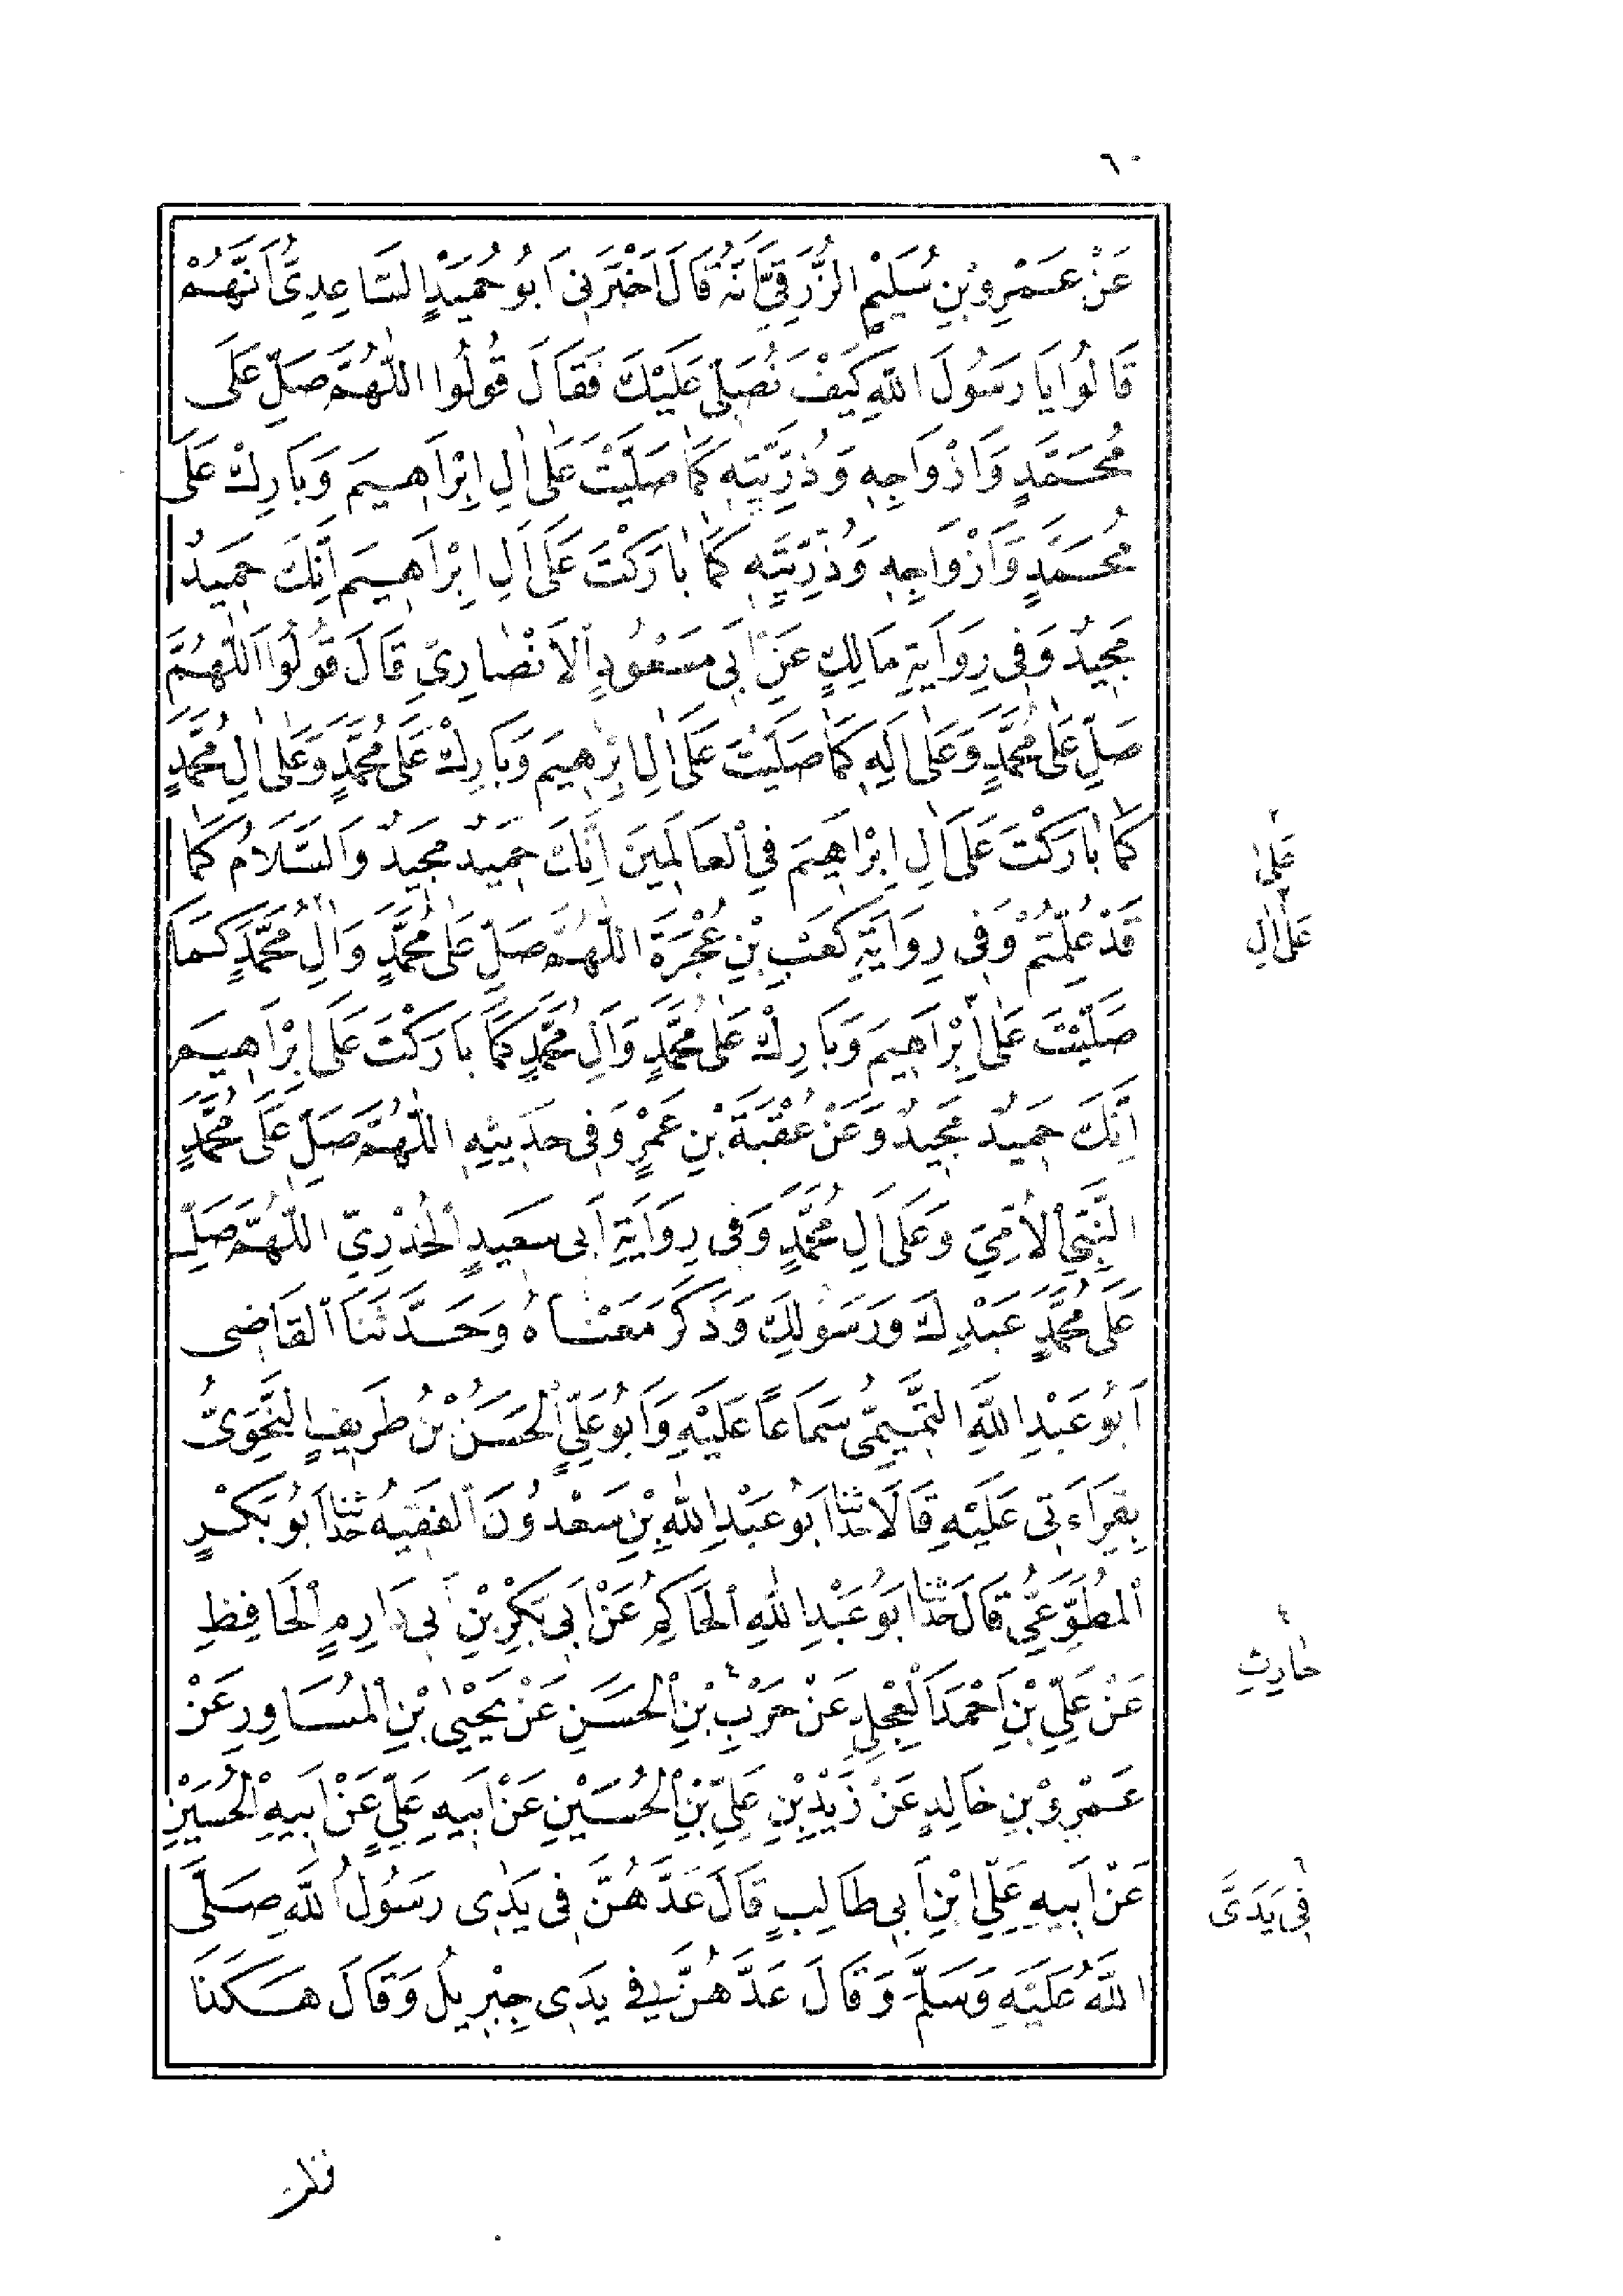 ٦٠
عَنْ عَمْرِو بْنِ سُلَيْمٍ الزُّرَقِيِّ أَنَّهُ قَالَ اَخْبَرَنِى اَبُو حُمَيْدٍ السَّاعِدِىُّ اَنَّهُمْ
قَالُوا يَا رَسُولَ اللّٰهِ كَيْفَ نُصَلِّى عَلَيْكَ فَقَالَ قُولُوا اللّٰهُمَّ صَلِّ عَلَى
مُحَمَّدٍ وَاَزْوَاجِهِ وَذُرِّيَّتِهِ كَمَا صَلَّيْتَ عَلٰى اٰلِ اِبْرَاهِيمَ وَبَارِكْ عَلَى
مُحَمَّدٍ وَاَزْوَاجِهِ وَذُرِّيَّتِهِ كَمَا بَارَكْتَ عَلَى اٰلِ اِبْرَاهِيمَ اِنَّكَ حَمِيدٌ
مَجِيدٌ وَفِى رِوَايَةِ مَالِكٍ عَنْ اَبِى مَسْعُودٍ الْاَنْصَارِىِّ قَالَ قُولُوا اَللّٰهُمَّ
صَلِّ عَلٰى مُحَمَّدٍ وَعَلٰى اٰلِهِ كَمَا صَلَّيْتَ عَلٰى اٰلِ اِبْرٰهِيمَ وَبَارِكْ عَلَى مُحَمَّدٍ وَعَلٰى اٰلِ مُحَمَّدٍ
كَمَا بَارَكْتَ عَلَى اٰلِ اِبْرَاهِيمَ فِى الْعَالَمِينَ اِنَّكَ حَمِيدٌ مَجِيدٌ وَالسَّلَامُ كَمَا
قَدْ عُلِّمْتُمْ وَفِى رِوَايَةِ كَعْبِ بْنِ عُجْرَةَ اللّٰهُمَّ صَلِّ عَلٰى مُحَمَّدٍ وَاٰلِ مُحَمَّدٍ كَمَا
صَلَّيْتَ عَلٰى اِبْرَاهِيمَ وَبَارِكْ عَلٰى مُحَمَّدٍ وَاٰلِ مُحَمَّدٍ كَمَا بَارَكْتَ عَلَى اِبْرَاهِيمَ
اِنَّكَ حَمِيدٌ مَجِيدٌ وَعَنْ عُقْبَةَ بْنِ عَمْرٍو فِى حَدِيثِهِ اللّٰهُمَّ صَلِّ عَلَى مُحَمَّدٍ
النَّبِىِّ الْاُمِّىِّ وَعَلَى اٰلِ مُحَمَّدٍ وَفِى رِوَايَةِ اَبِى سَعِيدٍ الْخُدْرِىِّ اللّٰهُمَّ صَلِّ
عَلَى مُحَمَّدٍ عَبْدِكَ وَرَسُولِكَ وَذَكَرَ مَعْنَاهُ وَحَدَّثَنَا الْقَاضِى
اَبُو عَبْدِ اللّٰهِ التَّمِيمِىُّ سَمَاعًا عَلَيْهِ وَاَبُو عَلِىٍّ الْحَسَنُ بْنُ طَرِيفٍ النَّحْوِىُّ
بِقِرَاءَتِى عَلَيْهِ قَالَا حَدَّثَنَا اَبُو عَبْدِ اللّٰهِ بْنِ سَعْدُونَ الْفَقِيهُ حَدَّثَنَا اَبُو بَكْرٍ
الْمُطَّوِّعِىُّ قَالَ حَدَّثَنَا اَبُو عَبْدِ اللّٰهِ الْحَاكِمُ عَنْ اَبِى بَكْرِ بْنِ اَبِى دَارِمٍ الْحَافِظِ
عَنْ عَلِىِّ بْنِ اَحْمَدَ الْعِجْلِىِّ عَنْ حَرْبِ٤ بْنِ الْحَسَنِ عَنْ يَحْيٰى بْنِ الْمُسَاوِرِ عَنْ
عَمْرِو بْنِ خَالِدٍ عَنْ زَيْدِ بْنِ عَلِىِّ بْنِ الْحُسَيْنِ عَنْ اَبِيهِ عَلِىٍّ عَنْ اَبِيهِ الْحُسَيْنِ
عَنْ اَبِيهِ عَلِىِّ ابْنِ اَبِى طَالِبٍ قَالَ عَدَّهُنَّ فِى يَدِى رَسُولُ اللّٰهِ صَلَّى
اللّٰهُ عَلَيْهِ وَسَلَّمَ وَقَالَ عَدَّهُنَّ فِى يَدِى جِبْرِيلُ وَقَالَ هٰكَذَا
عَلٰى
عَلٰى اٰلِ
٤
حَارِثِ
٦
فِى يَدَىَّ